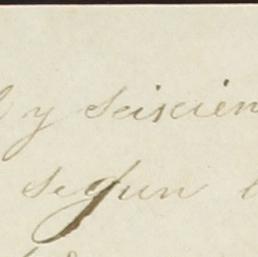 y seiscien
segun